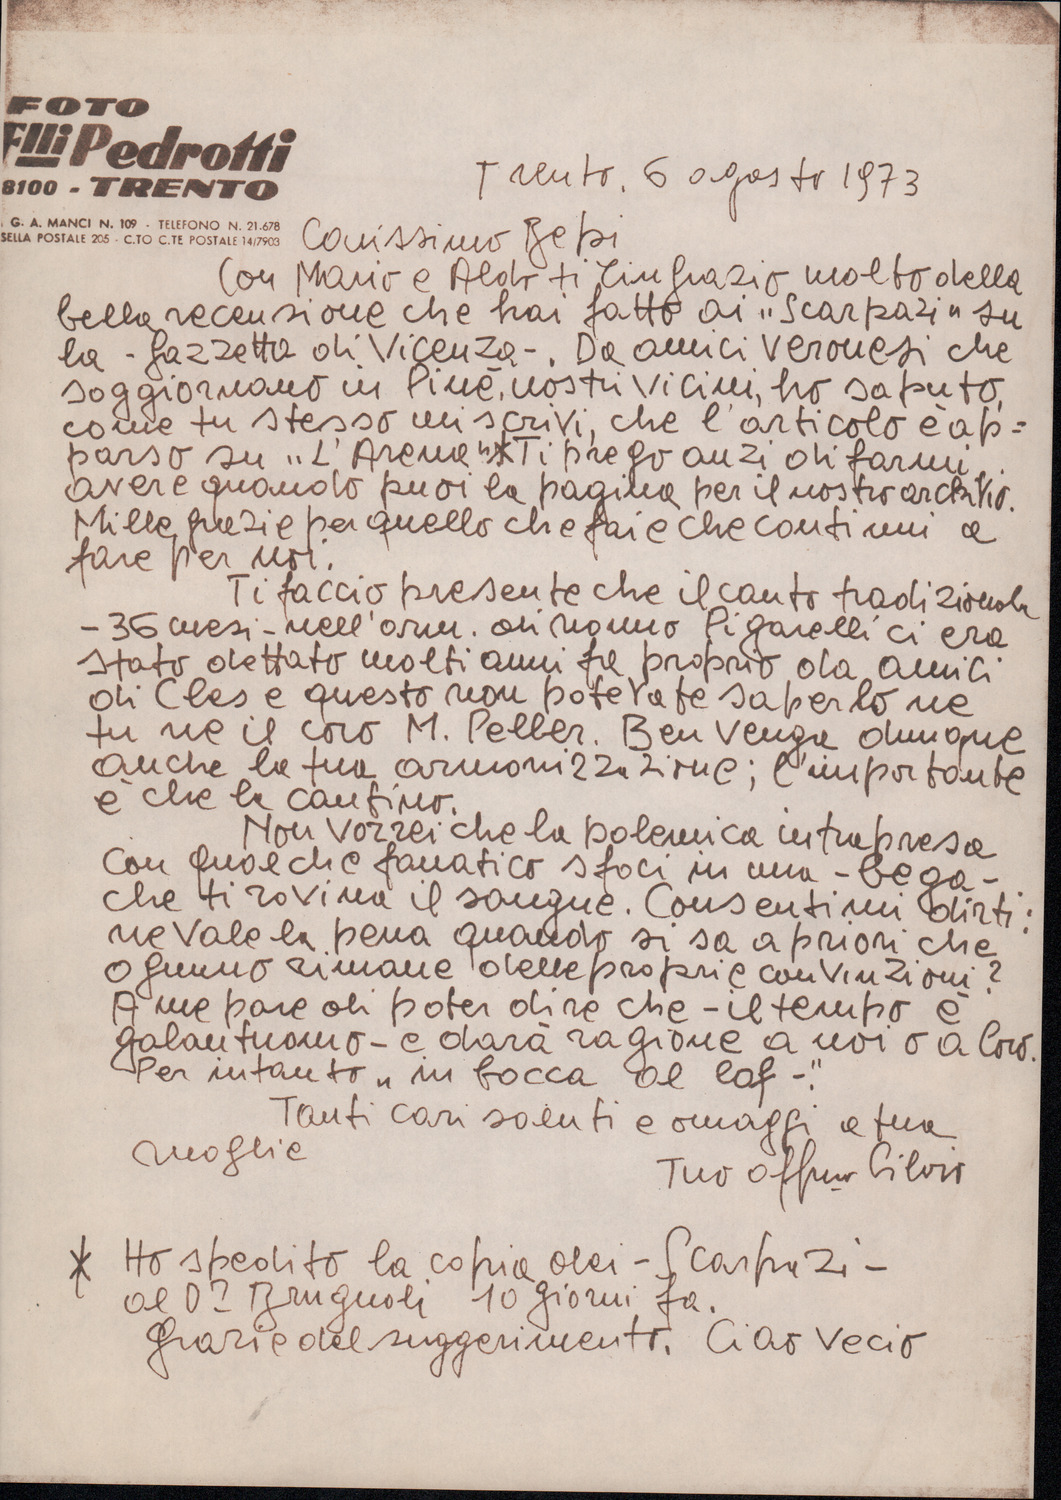 FOTO
F.lli Pedrotti
8100 - TRENTO
G. A. MANCI N. 109 - TELEFONO N. 21.678
SELLA POSTALE 205 - C.TO C.TE POSTALE 14/7903
Trento, 6 agosto 1973
Carissimo Bepi
Con Mario e Aldo ti ringrazio molto della
bella recensione che hai fatto ai "Scarpazi" su
la - Gazzetta di Vicenza -. Da amici veronesi che
soggiornano in Pinè, nostri vicini, ho saputo,
come tu stesso mi scrivi, che l'articolo è ap=
parso su "L'Arena"* Ti prego anzi di farmi
avere quando puoi la pagina per il nostro archivio.
Mille grazie per quello che fai e che continui a
fare per noi.
Ti faccio presente che il canto tradizionale
- 36 mesi - nell'arm. di nonno Pigarelli ci era
stato dettato molti anni fa proprio da amici
di Cles e questo non potevate saperlo ne
tu ne il coro M. Peller. Ben venga dunque
anche la tua armonizzazione; l'importante
è che la cantino.
Non vorrei che la polemica intrapresa
con qualche fanatico sfoci in una - bega -
che ti rovina il sangue. Consentimi dirti:
ne vale la pena quando si sa a priori che
ognuno rimane delle proprie convinzioni?
A me pare di poter dire che - il tempo è
galantuomo - e darà ragione a noi o a loro.
Per intanto "in bocca al laf -."
Tanti cari saluti e omaggi a tua
moglie
Tuo affmo Silvio
* Ho spedito la copia dei - Scarpazi -
al Dr Brugnoli 10 giorni fa.
Grazie del suggerimento. Ciao vecio